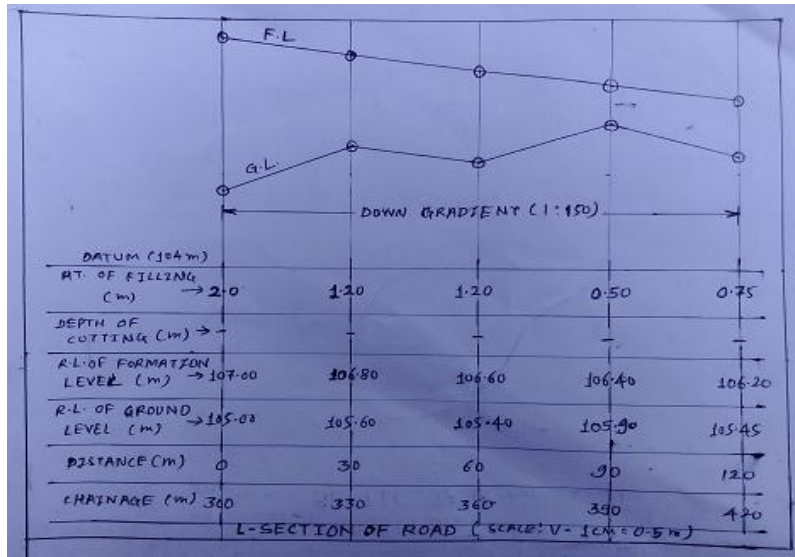 F.L
G.L.
DOWN GRADIENT (1:150)
DATUM (104m)
HT. OF FILLING (m) → 2.0 1.20 1.20 0.50 0.75
DEPTH OF CUTTING (m) → - - - - -
R.L. OF FORMATION LEVEL (m) → 107.00 106.80 106.60 106.40 106.20
R.L. OF GROUND LEVEL (m) → 105.00 105.60 105.40 105.90 105.45
DISTANCE (m) 0 30 60 90 120
CHAINAGE (m) 300 330 360 390 420
L-SECTION OF ROAD (SCALE: V- 1CM = 0.5m)